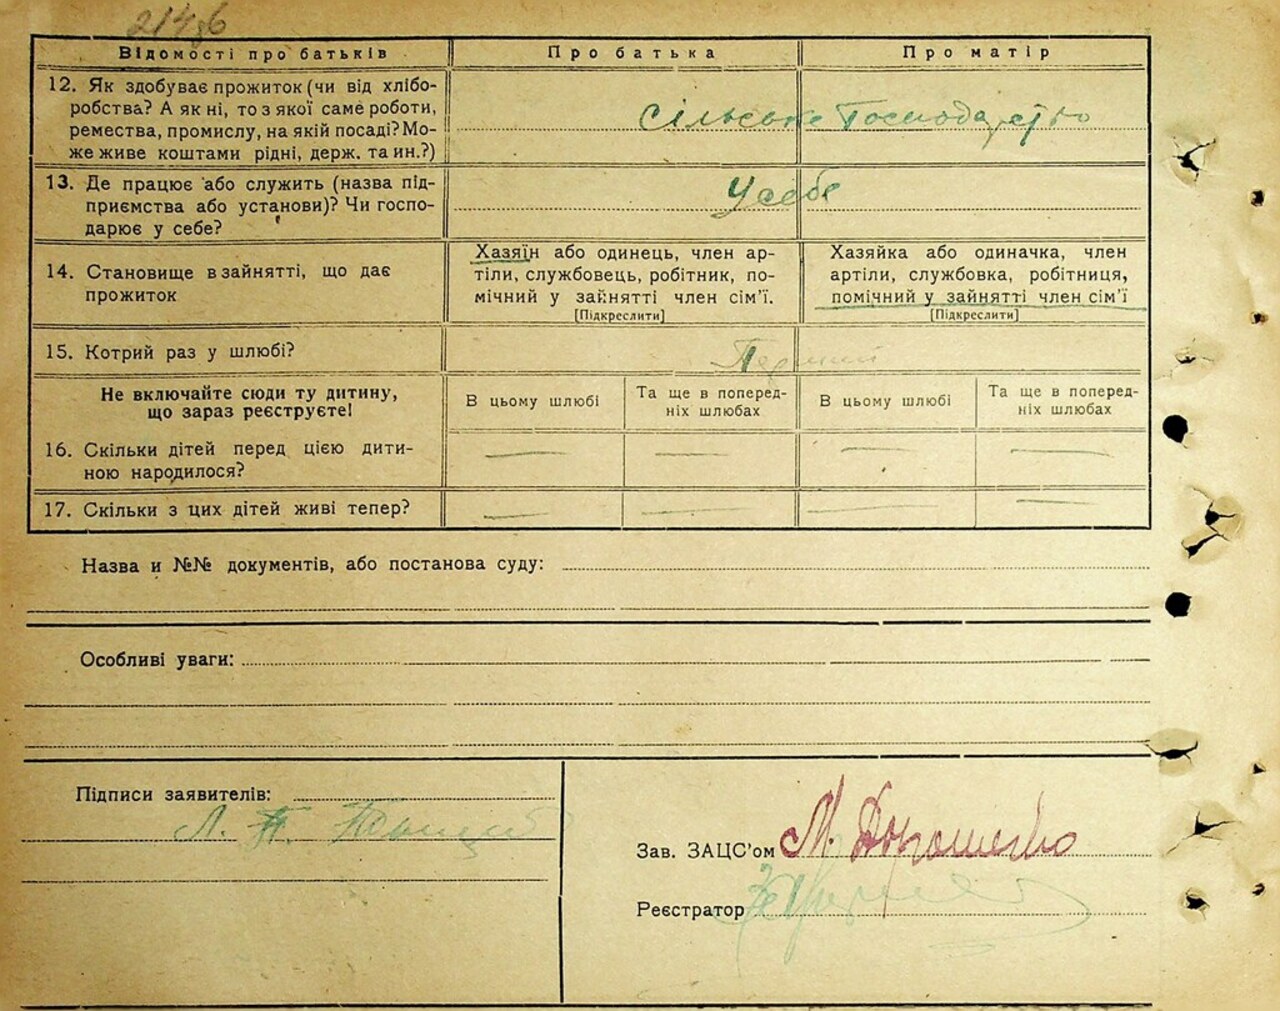 214зв
Відомості про батьків
Про батька
Про матір
12. Як здобуває прожиток (чи від хлібо-
робства? А як ні, то з якої саме роботи,
ремества, промислу, на якій посаді? Мо-
же живе коштами рідні, держ. та ин.?)
Сільське Господарство
13. Де працює або служить (назва під-
приємства або установи)? Чи госпо-
дарює у себе?
У себе
14. Становище в зайнятті, що дає
прожиток
Хазяїн або одинець, член ар-
тіли, службовець, робітник, по-
мічний у зайнятті член сім’ї.
[Підкреслити]
Хазяйка або одиначка, член
артіли, службовка, робітниця,
помічний у зайнятті член сім’ї
[Підкреслити]
15. Котрий раз у шлюбі?
Не включайте сюди ту дитину,
що зараз реєструєте!
В цьому шлюбі
Та ще в поперед-
ніх шлюбах
В цьому шлюбі
Та ще в поперед-
ніх шлюбах
16. Скільки дітей перед цією дити-
ною народилося?
17. Скільки з цих дітей живі тепер?
Назва и №№ документів, або постанова суду:
Особливі уваги:
Підписи заявителів:
Зав. ЗАЦС’ом М. Дорошенко
Реєстратор